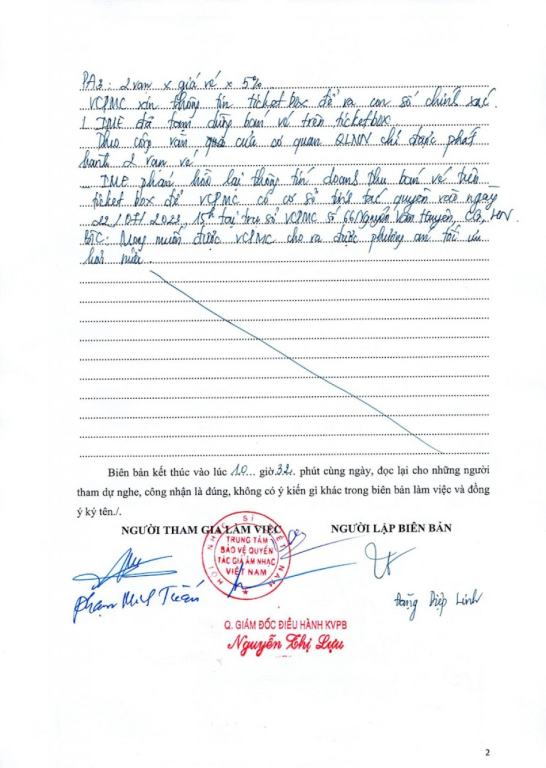 PA3: 2 vạn x giá vé x 5%.
VCPMC xin thông tin ticketbox để ra con số chính xác.
1. IME đã tạm dừng bán vé trên ticketbox.
Theo công văn của cơ quan QLNN chỉ được phát
hành 2 vạn vé
IME phản hồi lại thông tin doanh thu bán vé trên
ticket box để VCPMC có cơ sở tính tác quyền vào ngày
22/07/2023, 15h tại trụ sở VCPMC số 66 Nguyễn Văn Huyên, CG, HN
BTC: Mong muốn được VCPMC cho ra được phương án tối ưu
hơn nữa.
Biên bản kết thúc vào lúc 10 giờ 32 phút cùng ngày, đọc lại cho những người
tham dự nghe, công nhận là đúng, không có ý kiến gì khác trong biên bản làm việc và đồng
ý ký tên./.
NGƯỜI THAM GIA LÀM VIỆC NGƯỜI LẬP BIÊN BẢN
HỘI NHẠC SĨ VIỆT NAM
TRUNG TÂM
BẢO VỆ QUYỀN
TÁC GIẢ ÂM NHẠC
VIỆT NAM
Phạm Tuấn
Đặng Diệp Linh
Q. GIÁM ĐỐC ĐIỀU HÀNH KVPB
Nguyễn Thị Lựu
2